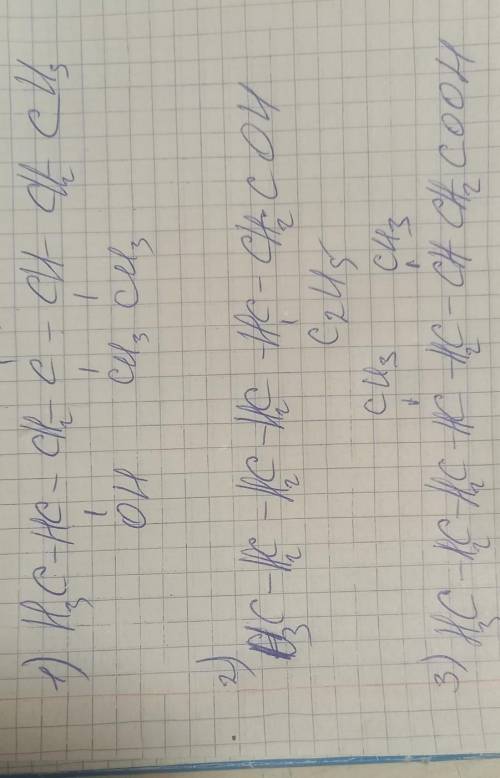 1) H₃C-HC-CH₂-C-CH-CH₂-CH₃
OH CH₃ CH₃
2) H₃C-H₂C-H₂C-H₂C-HC-CH₂-COH
C₂H₅
CH₃ CH₃
3) H₃C-H₂C-H₂C-HC-H₂C-CH-CH₂-COOH